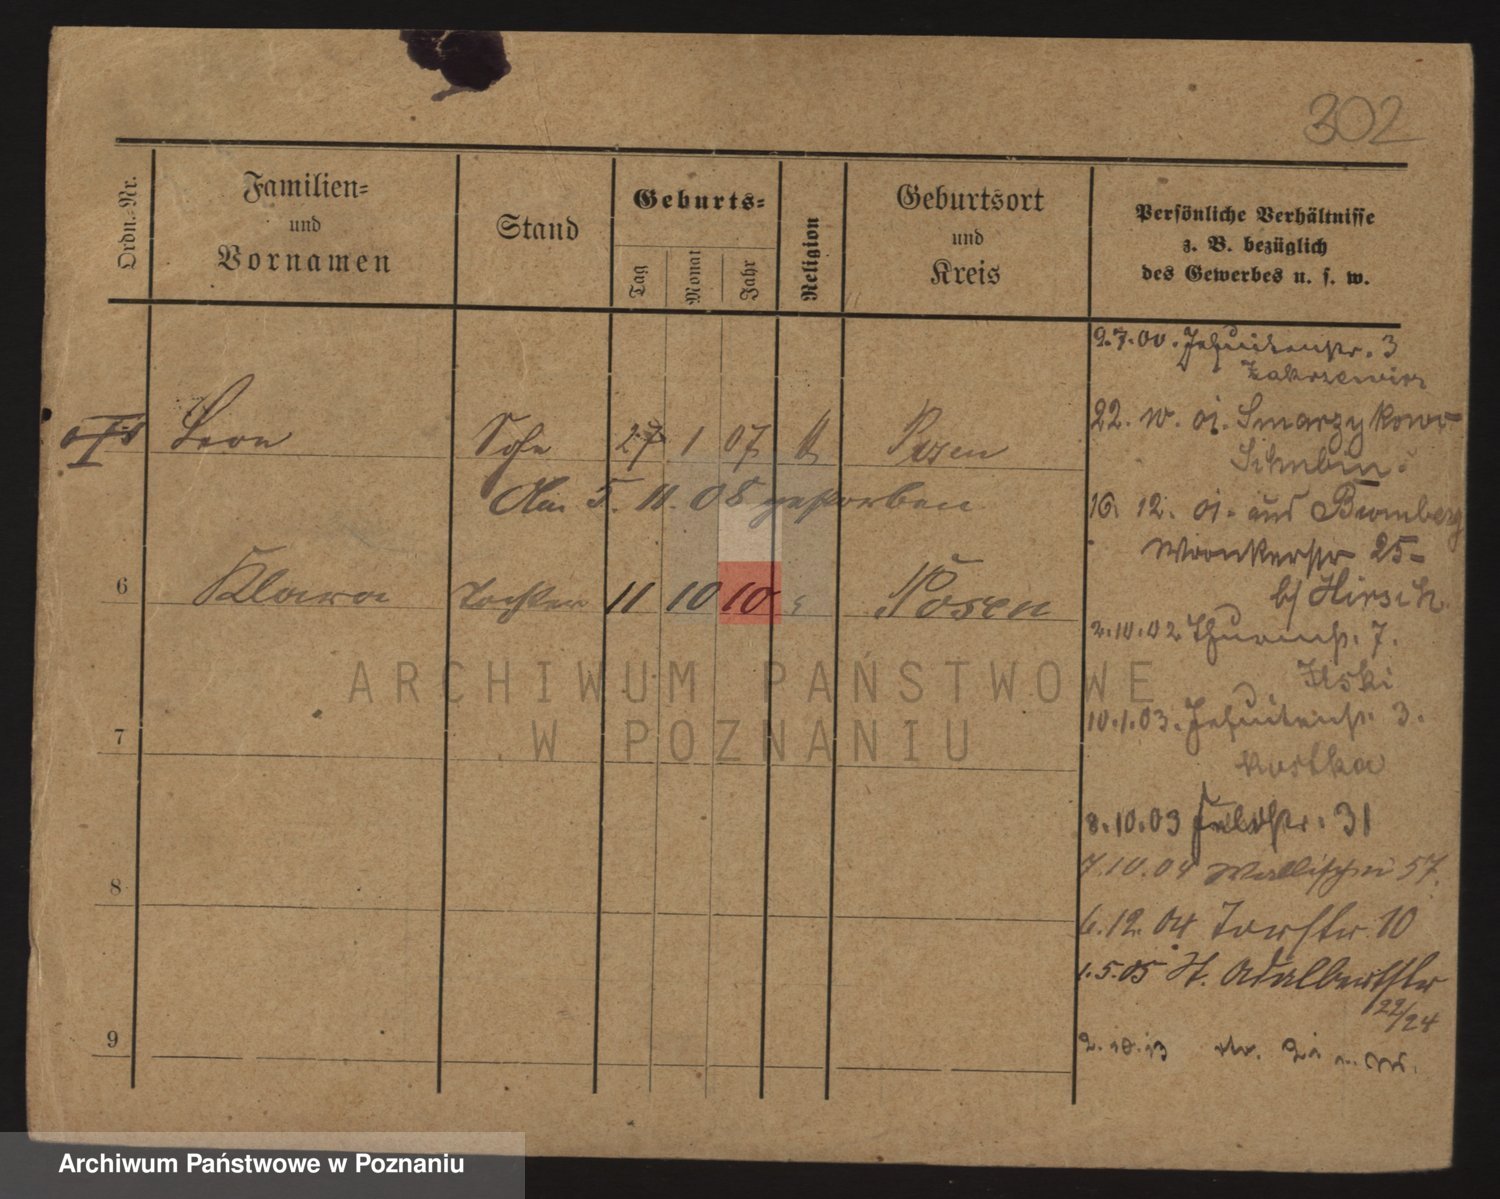 302
Ordn.-Nr.
Familien-
und
Vornamen
Stand
Geburts-
Tag
Monat
Jahr
Religion
Geburtsort
und
Kreis
Persönliche Verhältnisse
z. B. bezüglich
des Gewerbes u. s. w.
Leon Sohn 27 1 07 Posen
Am 5. 11. 08 gestorben
6 Klara Tochter 11 10 10 Posen
7
8
9
9.7.00. Jesuitenstr. 3
Zakrzewicz
22. oi. Smarzykowo
Schubin
16. 12. oi. aus Bromberg
Wronkerstr 25-
b/ Hirsch
2.10.02 Thurmstr. 7.
Ilski
10.1.03. Jesuitenstr. 3.
Kostka
8.10.03 Feldstr. 31
7.10.04 Wallischei 57.
6.12.04 Torstr. 10
1.5.05 St. Adalbertstr
22/24
2.10.13
ARCHIWUM PAŃSTWOWE
W POZNANIU
Archiwum Państwowe w Poznaniu